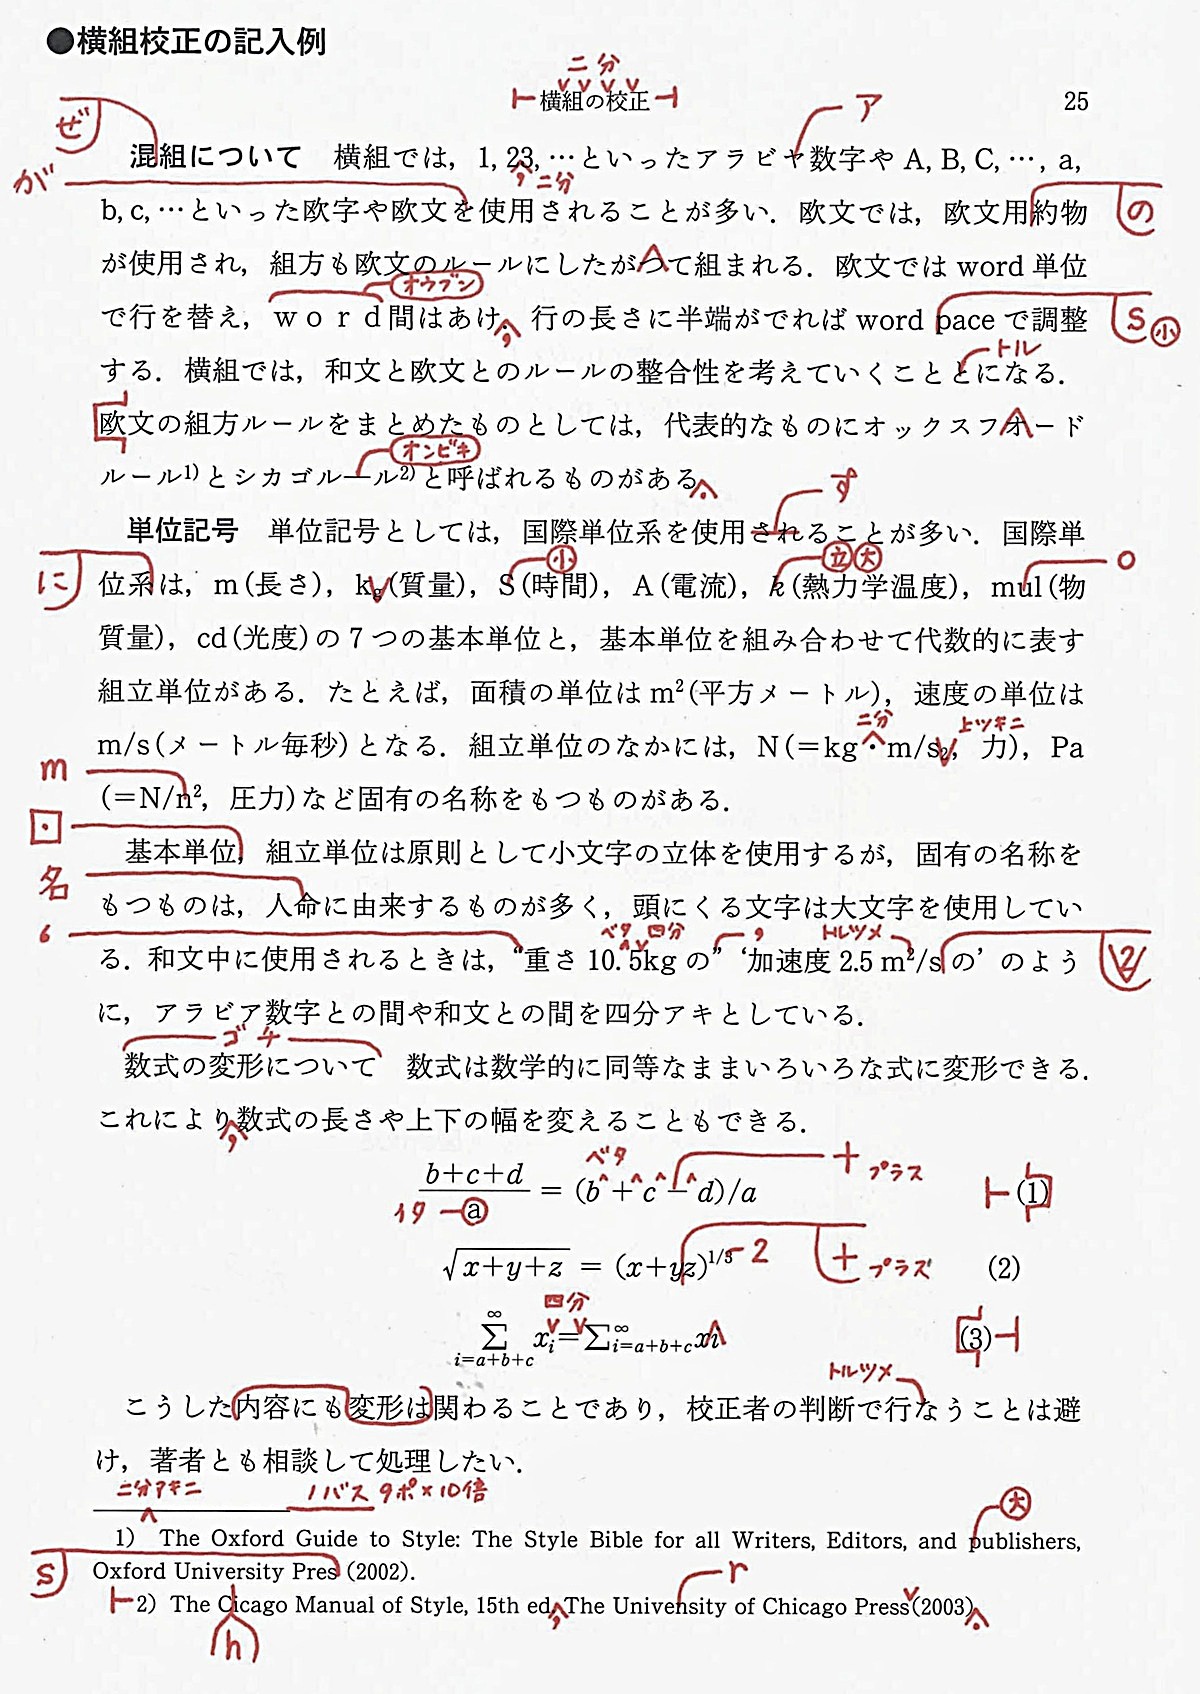 ●横組校正の記入例
二分
横組の校正 25
ア
ぜ
混組について 横組では，1, 23, …といったアラビヤ数字や A, B, C, …, a,
が
, 二分
b, c, …といった欧字や欧文を使用されることが多い．欧文では，欧文用約物
の
が使用され，組方も欧文のルールにしたがつて組まれる．欧文では word 単位
オウブン
で行を替え，ｗｏｒｄ間はあけ．行の長さに半端がでれば word pace で調整
, s 小
トル
する．横組では，和文と欧文とのルールの整合性を考えていくこととになる．
欧文の組方ルールをまとめたものとしては，代表的なものにオックスフオード
オンビキ
ルール1)とシカゴル―ル2)と呼ばれるものがある
.
す
単位記号 単位記号としては，国際単位系を使用されることが多い．国際単
小 立 大 o
に
位系は，m (長さ)，kg (質量)，S (時間)，A (電流)，k (熱力学温度)，mul (物
質量)，cd (光度) の 7 つの基本単位と，基本単位を組み合わせて代数的に表す
組立単位がある．たとえば，面積の単位は m² (平方メートル)，速度の単位は
二分 上ツキニ
m/s (メートル毎秒) となる．組立単位のなかには，N (＝kg・m/s2，力)，Pa
m
(＝N/n²，圧力) など固有の名称をもつものがある．
・
基本単位，組立単位は原則として小文字の立体を使用するが，固有の名称を
名
もつものは，人命に由来するものが多く，頭にくる文字は大文字を使用してい
ベタ 四分 , トルツメ
る．和文中に使用されるときは，“重さ 10. 5kg の” ‘加速度 2.5 m²/s の’ のよう
2
に，アラビア数字との間や和文との間を四分アキとしている．
ゴチ
数式の変形について 数式は数学的に同等なままいろいろな式に変形できる．
これにより数式の長さや上下の幅を変えることもできる．
,
ベタ + プラス
b+c+d = (b + c − d)/a (1)
イタ a
√x+y+z = (x+yz)1/3 2 + プラス (2)
四分
∞
∑ xi=∑∞i=a+b+c xi (3)
i=a+b+c
トルツメ
こうした内容にも変形は関わることであり，校正者の判断で行なうことは避
け，著者とも相談して処理したい．
二分アキニ 1バス 9ポ×10倍
大
1) The Oxford Guide to Style: The Style Bible for all Writers, Editors, and publishers,
s
Oxford University Pres (2002).
r
2) The Cicago Manual of Style, 15th ed, The Univensity of Chicago Press(2003)
h , .